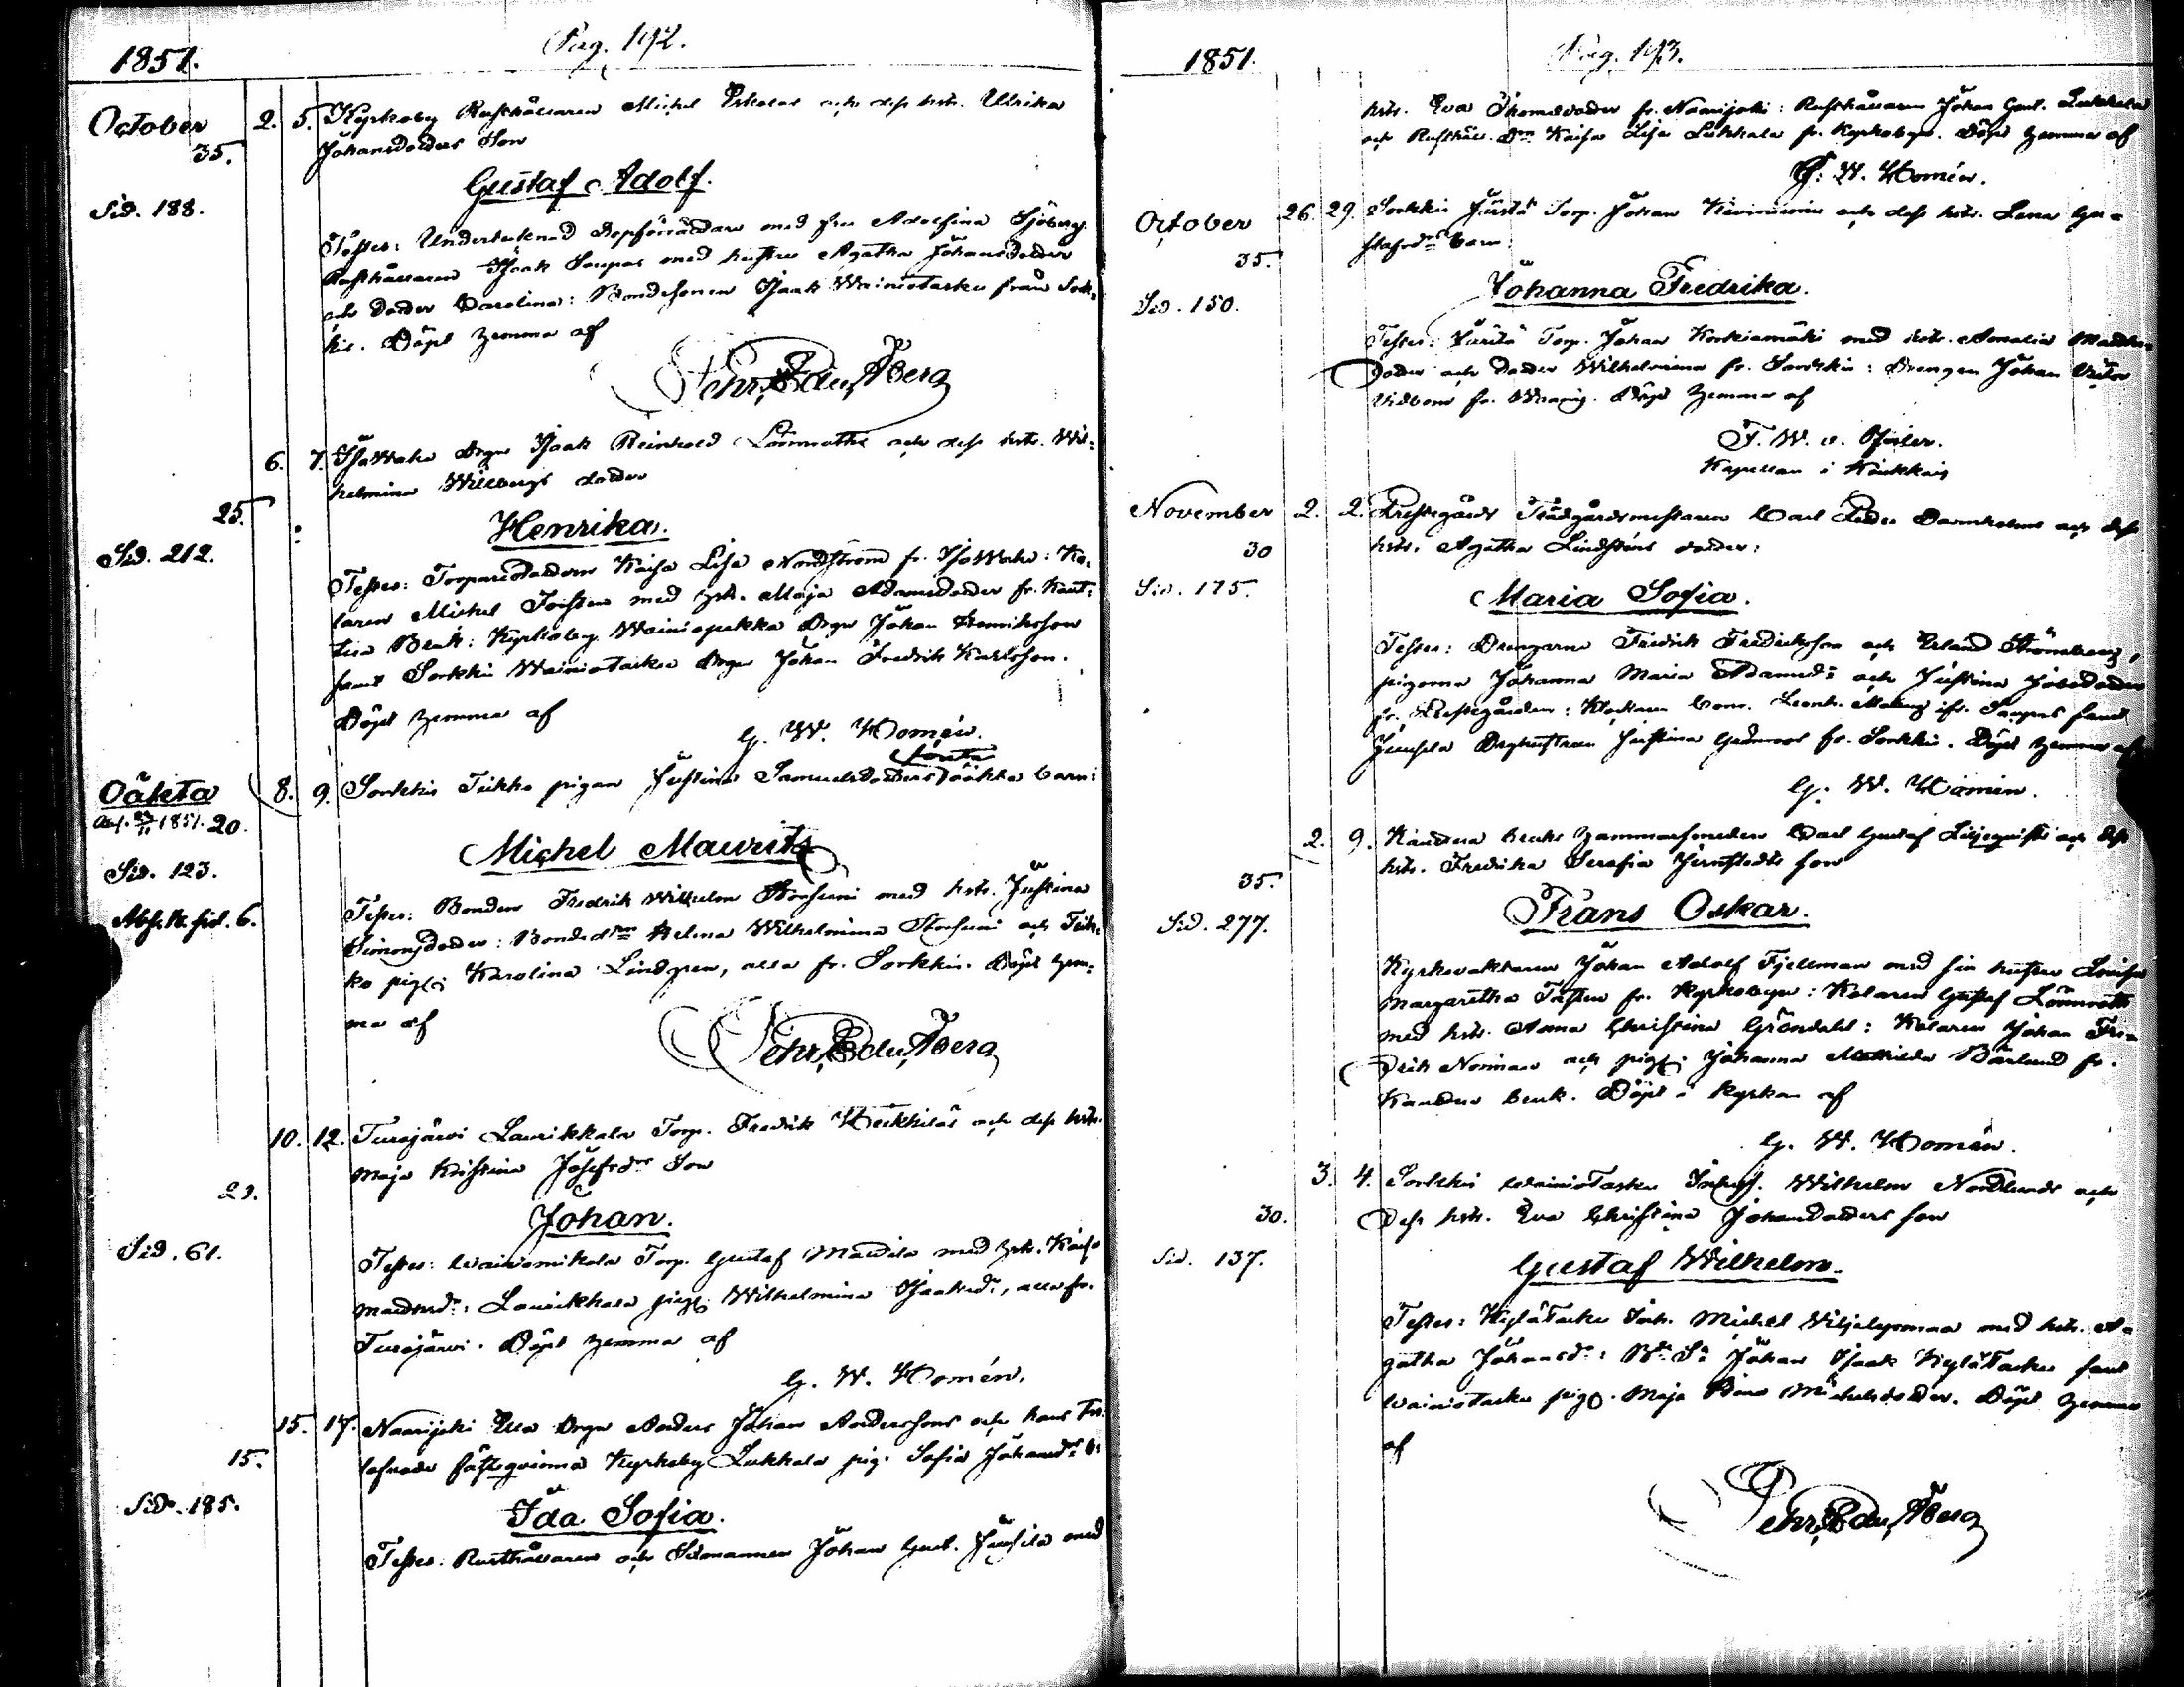 1851. Pag. 192.
October 2. 5. Kyrkoby Rusthållaren Michel Erkolas och dess hstr. Ulrika
35. Johansdotters Son
Gustaf Adolf.
Sid. 188.
Testes: Undertecknad Dopförrättare med fru Adolfina Sjöberg
Rusthållaren Isaak Saupas med hustru Agatha Johansdotter
och dotter Carolina: Bondesonen Isaak Wainiotasku från Sork-
kis. Döpt hemma af
Pehr Edu. Åberg
6. 7. Drgn Isaak Reinhold Lönnroths och dess hstr. Wil-
helmina Willbergs dotter
25.
Henrika.
Sid. 212.
Testes: Kaisa Lisa Nordström fr.
laren Michel med hstr. Maja Adamsdotter fr. Kaut-
tua Bruk: Kyrkoby Wainiopekka Drgn Johan Henriksson
samt Sorkkis Wainiotasku Drgn Johan Fredrik Karlsson.
Döpt hemma af
G. W. Homén.
Oäkta 8. 9. Sorkkis Tukko pigan Justina Samuelsdotters oäkta barn:
1851. 20.
Michel Maurits
Sid. 123.
Testes: Bonden Fredrik Wilhelm med hstr. Justina
Simonsdotter: Helena Wilhelmina och Tuk-
sid. 6.
ko pig. Karolina Lindgren, alla fr. Sorkkis. Döpt hem-
ma af
Pehr Edu. Åberg
10. 12. Turajärvi Laurikkala Torp. Fredrik Heikkiläs och dess hstr.
Maja Kristina Josefsdrs Son
29.
Johan.
Sid. 61.
Testes: Torp. Gustaf Mattila med hstr. Kaisa
Mattsdr: Laurikkala pig. Wilhelmina Isaaksdr, alla fr.
Turajärvi. Döpt hemma af
G. W. Homén.
15. 17. Naarijoki Drgn Anders Johan Anderssons och hans
lofvade fästeqvinna Kyrkoby Lukkala pig. Sofia Johansdrs
15.
Ida Sofia.
Sid. 185.
Testes: Rusthållaren och Johan Gust. Jussila med
1851. Pag. 193.
hstr. Eva Thomasdotter fr. Naarijoki: Rusthållaren Johan Gust. Lukkala
och Rusthåll. Dr. Kaisa Lisa Lukkala fr. Kyrkobyn. Döpt hemma af
G. W. Homén.
October 26. 29. Sorkkis Torp. Johan och dess hstr. Lena Gu-
stafsdrs barn:
35.
Johanna Fredrika.
Sid. 150.
Testes: Torp. Johan Korkiamäki med hstr. Amalia Matths-
dotter och dotter Wilhelmina fr. Sorkkis: Drengen Johan Victor
fr. Döpt hemma af
F. W. v. Pfaler.
Kapellan i Kiukkais
November 2. 2. Prestegårds Trädgårdsmästaren Carl och dess
30 hstr. Agatha Lindsténs dotter:
Sid. 175.
Maria Sofia.
Testes: Drengarne Fredrik Fredriksson och Erland Strömberg,
pigorna Johanna Maria Adamsdr och Justina Jobsdotter
fr. Prestegården: Klockaren fr. Saupas samt
Jussila Drghustrun Justina Grönroos fr. Sorkkis. Döpt hemma af
G. W. Homén.
2. 9. Kauttua Bruks Hammarsmeden Carl Gustaf Liljeqvists och dess
hstr. Fredrika Serafia Jernstedts son
35.
Frans Oskar.
Sid. 277.
Kyrkovaktaren Johan Adolf Fjellman med sin hustru Lovisa
Margaretha fr. Kyrkobyn: Kolaren Gustaf Lönnroth
med hstr. Anna Christina Gröndahl: Kolaren Johan Fre-
drik Norrman och pig. Johanna Mathilda Bärlund fr.
Kauttua bruk. Döpt i Kyrkan af
G. W. Homén.
3. 4. Sorkkis Wainiotasku Inhys. Wilhelm Nordlunds och
30. Dess hstr. Eva Christina Johansdotters son
Sid. 137.
Gustaf Wilhelm.
Testes: Inh. Michel med hstr. A-
gatha Johansdr: Johan Isaak samt
Wainiotasku pig. Maja Stina Michelsdotter. Döpt hemma
af
Pehr Edu. Åberg